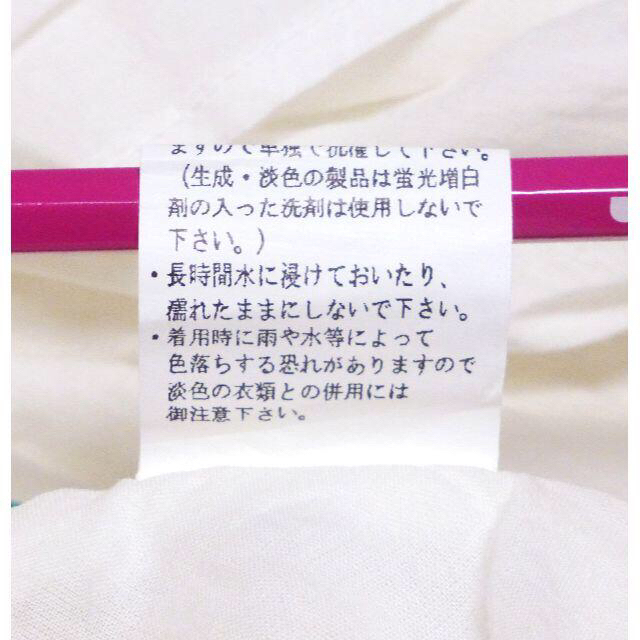 ますので単独で洗濯して下さい。
(生成・淡色の製品は蛍光増白
剤の入った洗剤は使用しないで
下さい。)
・長時間水に浸けておいたり、
濡れたままにしないで下さい。
・着用時に雨や水等によって
色落ちする恐れがありますので
淡色の衣類との併用には
御注意下さい。